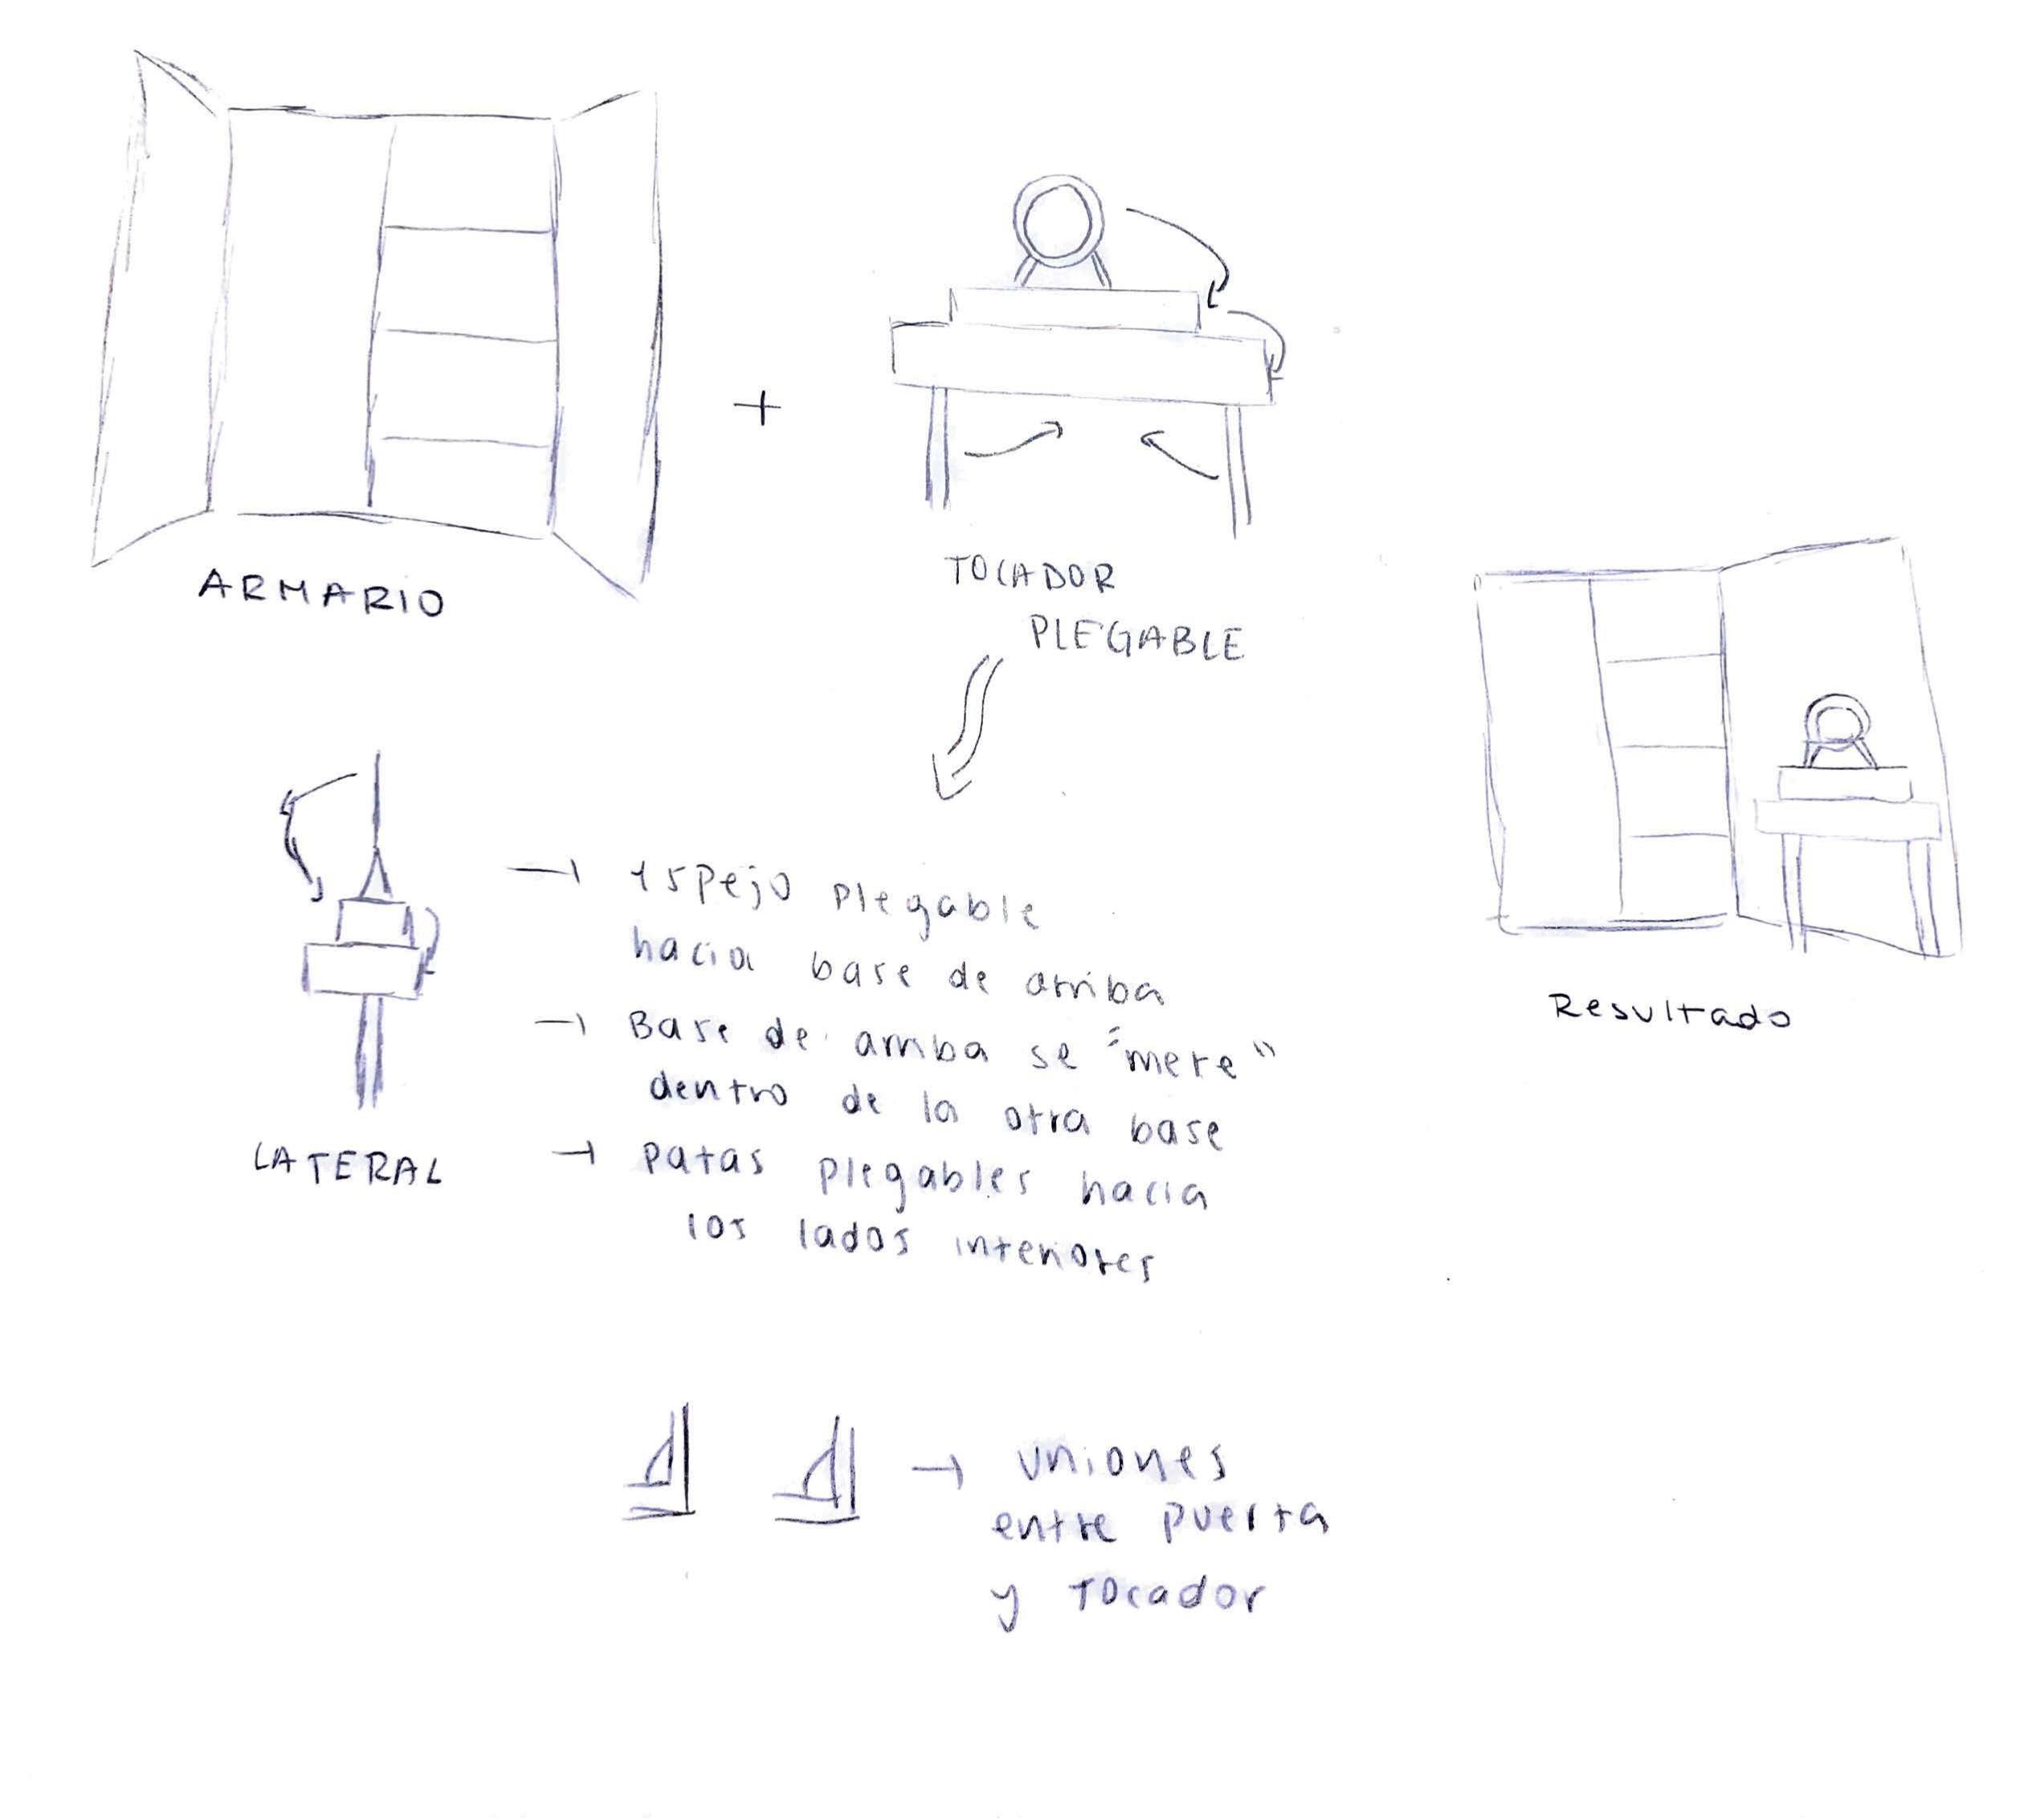 ARMARIO
+
TOCADOR
PLEGABLE
Resultado
LATERAL
→ Espejo plegable
hacia base de arriba
→ Base de arriba se "mete"
dentro de la otra base
→ Patas plegables hacia
los lados interiores
→ Uniones
entre puerta
y Tocador